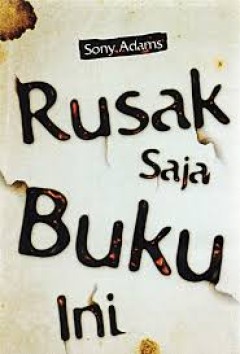 Sony.Adams
Rusak
Saja
Buku
Ini